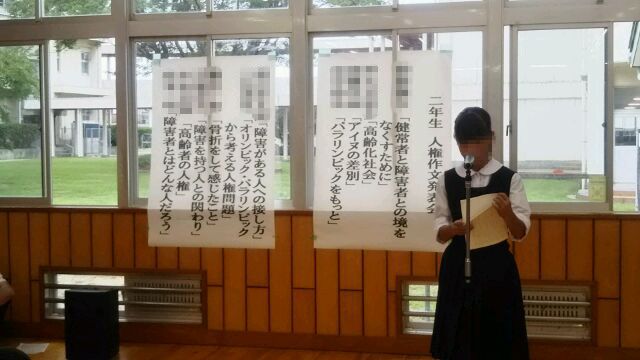 二年生 人権作文発表会
「健常者と障害者との境を
なくすために」
「高齢化社会」
「アイヌの差別」
「パラリンピックをもっと」
「障害がある人への接し方」
「オリンピック・パラリンピック
から考える人権問題」
「骨折をして感じたこと」
「障害を持つ人との関わり」
「高齢者の人権」
「障害者とはどんな人だろう」